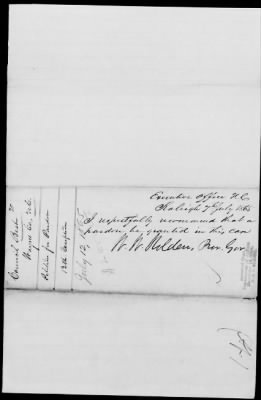 Executive Office N.C.
Raleigh 7 July 1865
I respectfully recommend that a
pardon be granted in this case
W. W. Holden, Prov. Gov
Council Best
Wayne Co., N.C.
Petition for Pardon
13th Exception
July 12, 1865